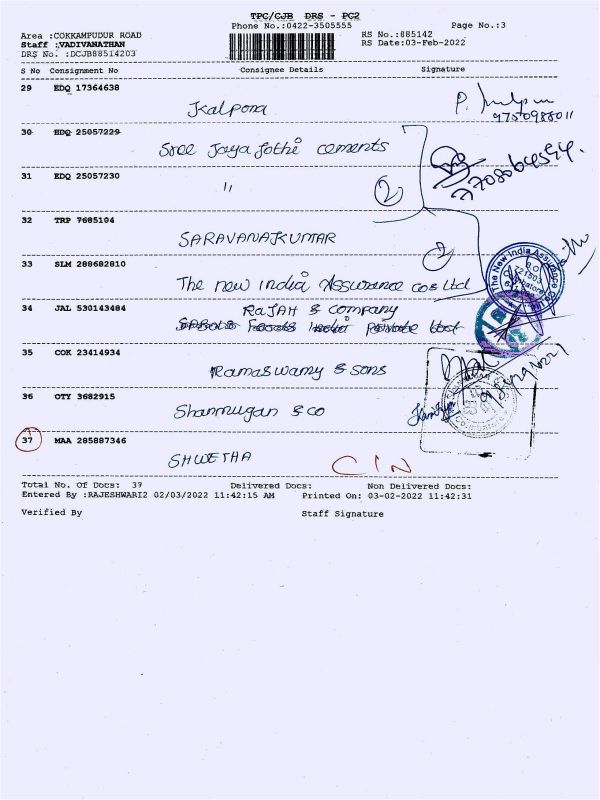 TPC/CJB DRS - PC2
Phone No.:0422-3505555
Page No.:3
Area :COKKAMPUDUR ROAD
Staff :VADIVANATHAN
DRS No. :DCJB88514203
RS No.:885142
RS Date:03-Feb-2022
S No Consignment No Consignee Details Signature
29 EDQ 17364638
Kalpona
P.
9750988011
30 EDQ 25057229
Sree Jaya Jothi cements
31 EDQ 25057230
"
2
32 TRP 7685104
SARAVANAKUMAR
2
33 SLM 288682810
The new india Assurance cos Ltd
The New India Assurance
34 JAL 530143484
RAJAH & COMPANY
35 COK 23414934
Ramaswamy & sons
36 OTY 3682915
Shanmugan & co
37 MAA 285887346
SHWETHA
CIN
Total No. Of Docs: 37 Delivered Docs: Non Delivered Docs:
Entered By :RAJESHWARI2 02/03/2022 11:42:15 AM Printed On: 03-02-2022 11:42:31
Verified By Staff Signature